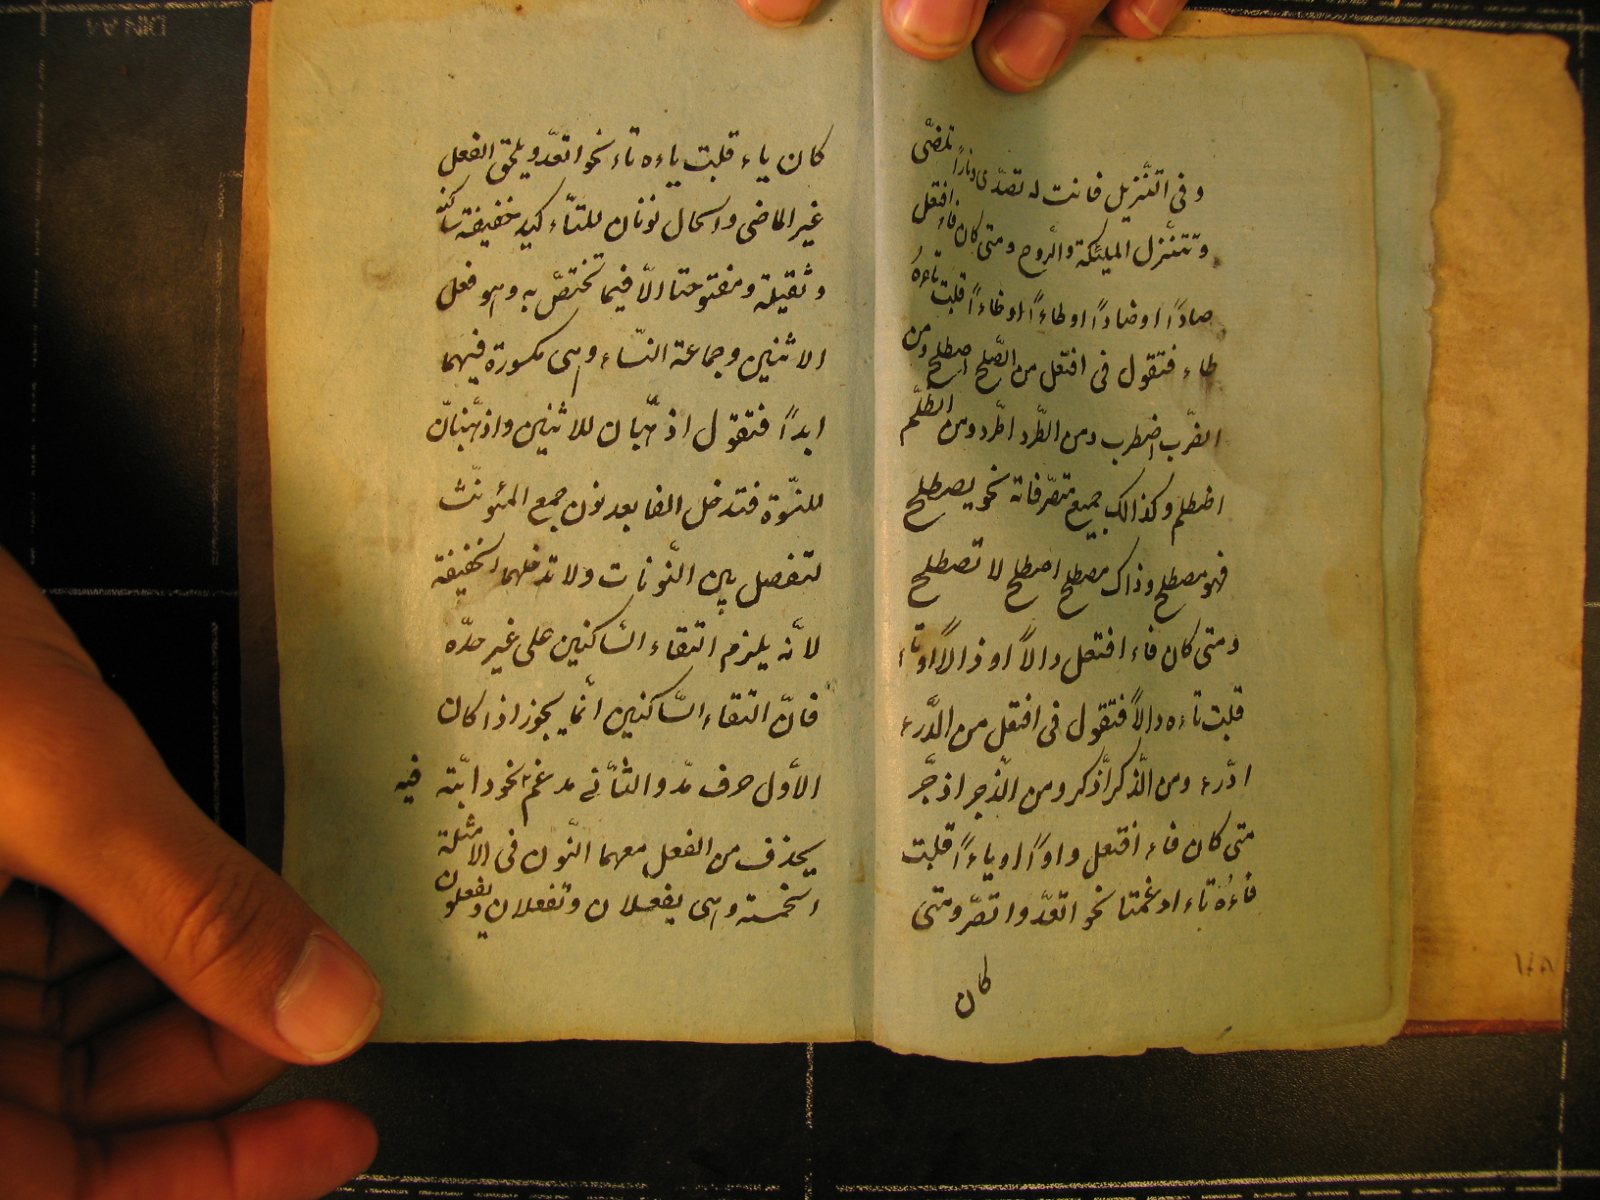 وفى التّنزيل فانت له تصدّى ونارًا تلضّى
وتتنزل الملئكة والرّوح ومتى كان فاء افتعل
صادًا اوضادًا اوطاءً اوظاءً قلبت تاءهُ
طاء فتقول فى افتعل من الصّلح اصطلح ومن
الضّرب اضطرب ومن الطّرد اطّرد ومن الظّلم
اظطلم وكذالك جميع متصرّفاته نحو يصطلح
فهو مصطلح وذاك مصطلح اصطلح لا تصطلح
ومتى كان فاء افتعل دالاً اوذالاً او زاء
قلبت تاءه دالاً فتقول فى افتعل من الدّرء
ادّرء ومن الذّكر اذّكر ومن الذّجر اذجّر
متى كان فاء افتعل واوًا اوياءً قلبت
فاءُه تاء ادغمتا نحو اتعّد واتصّر ومتى
كان
كان ياء قلبت ياءه تاء نحو اتعّد ويلحق الفعل
غير الماضى والحال نونان للتّاءكيد خفيفة ساكنة
وثقيلة ومفتوحتا الاّ فيما تختصّ به وهو فعل
الاثنين وجماعة النسّاء وهى مكسورة فيهما
ابداً فتقول اذهّبان للاثنين واذهّبنانّ
للنّسوة فتدخل الفا بعد نون جمع المئونّث
لتفصل بين النّونات ولا تدخلهما الخفيفة
لانّه يلزم التقاء السّاكنين على غير حدّه
فانّ التقاء السّاكنين انّما يجوز اذا كان
الاوّل حرف مدّ والثّانى مدغم نحو دابّة فيه
يحذف من الفعل معهما النّون فى الامثلة
الخمسة وهى يفعلان وتفعلان ويفعلون